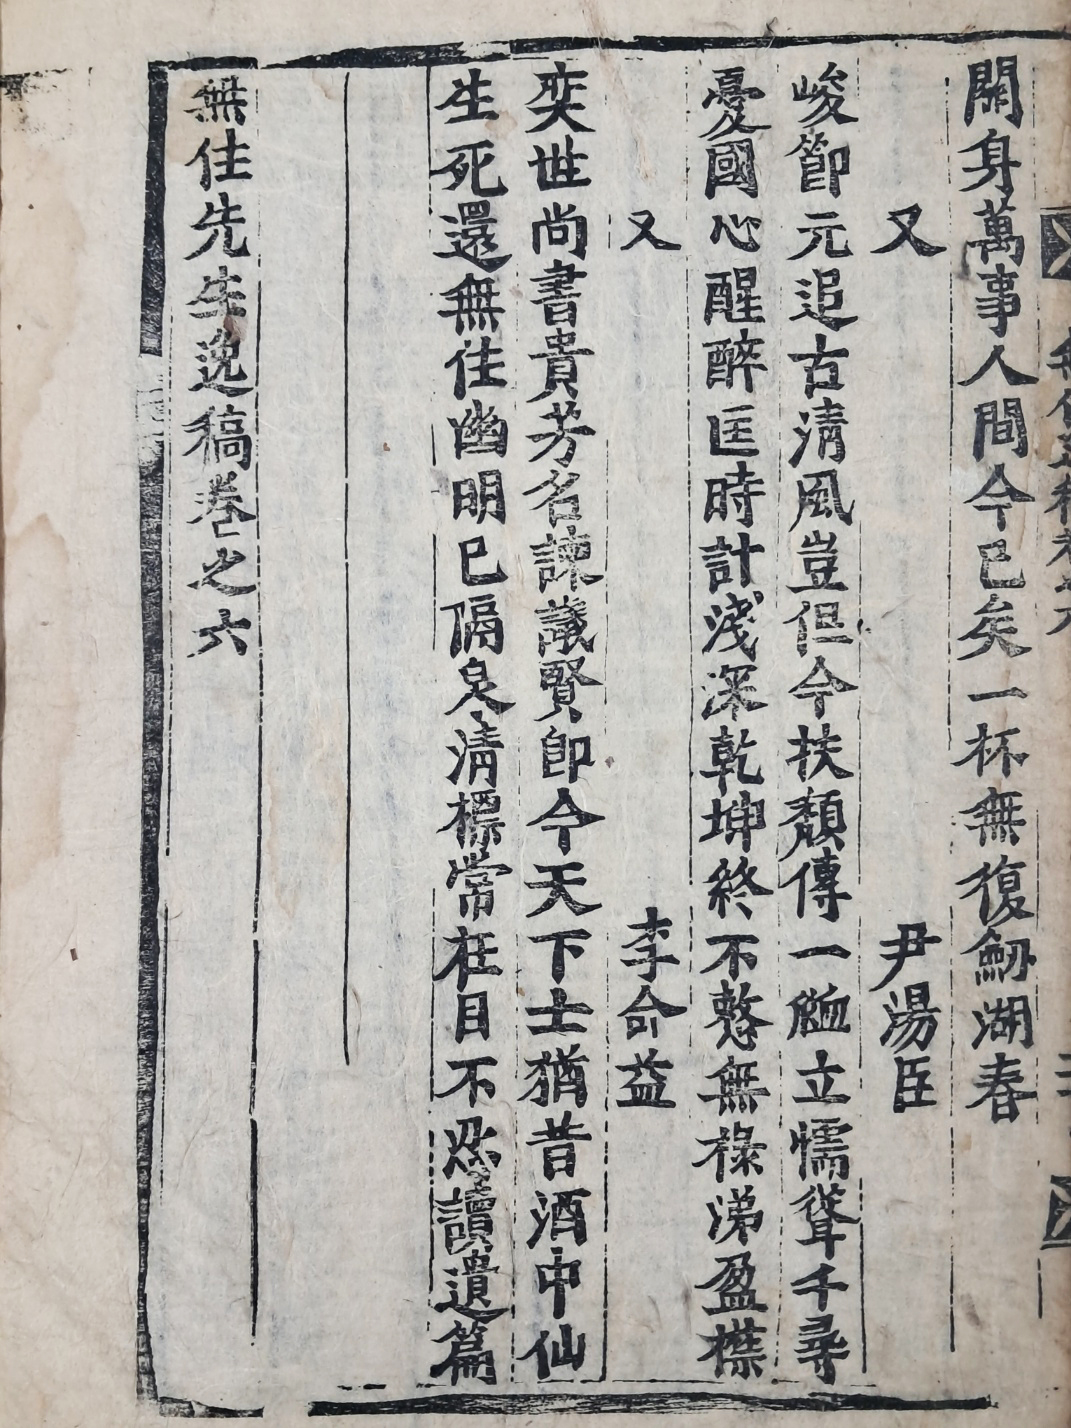 關身萬事人間今已矣一杯無復劒湖春
又 尹湯臣
峻節元追古清風豈但今扶頹傳一立懦聳千尋
憂國心醒醉匡時計淺深乾坤終不憗無祿涕盈襟
又 李命益
奕世尚書貴芳名諫議賢即今天下士猶昔酒中仙
生死還無住幽明已隔泉清標常在目不忍讀遺篇
無住先生逸稿卷之六